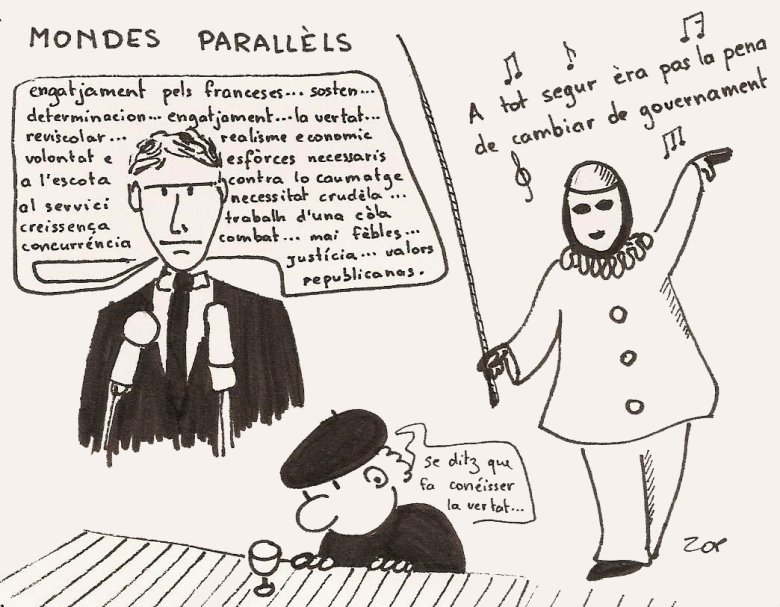 MONDES PARALLÈLS
engatjament pels franceses... sosten...
determinacion... engatjament... la vertat...
reviscolar... realisme economic
volontat e esfòrces necessaris
a l'escota contra lo caumatge
al servici necessitat crudèla...
creissença trabalh d'una còla
concurréncia combat... mai fèbles...
justícia... valors
republicanas.
A tot segur èra pas la pena
de cambiar de governament
se ditz que
fa conéisser
la vertat...
Zop